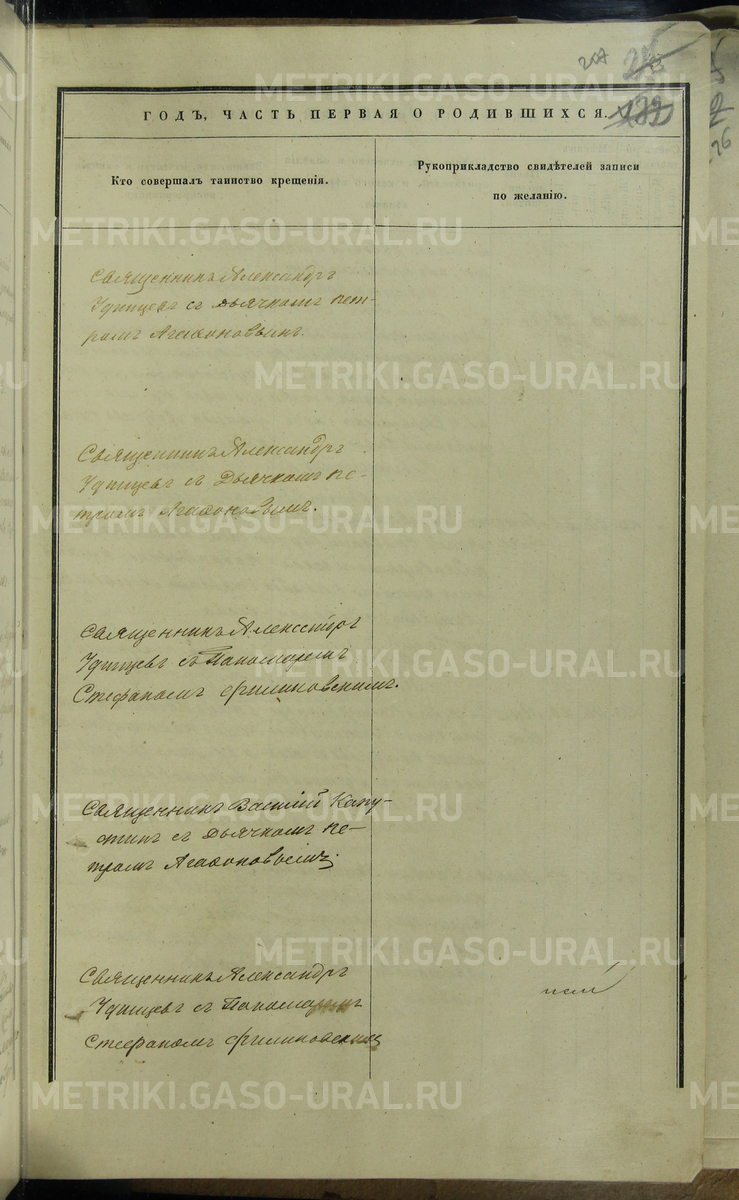 207
ГОДЪ, ЧАСТЬ ПЕРВАЯ О РОДИВШИХСЯ.
Кто совершалъ таинство крещенія.
Рукоприкладство свидѣтелей записи
по желанію.
Священникъ Александръ
Удинцевъ съ Дьячкомъ Пет-
ромъ Агафоновымъ.
Священникъ Александръ
Удинцевъ съ Дьячкомъ Пе-
тромъ Агафоновымъ.
Священникъ Александръ
Удинцевъ съ Пономаремъ
Стефаномъ Филиновскимъ.
Священникъ Василій Капу-
стинъ съ Дьячкомъ Пе-
тромъ Агафоновымъ.
Священникъ Александръ
Удинцевъ съ Пономаремъ
Стефаномъ Филиновскимъ
METRIKI.GASO-URAL.RU